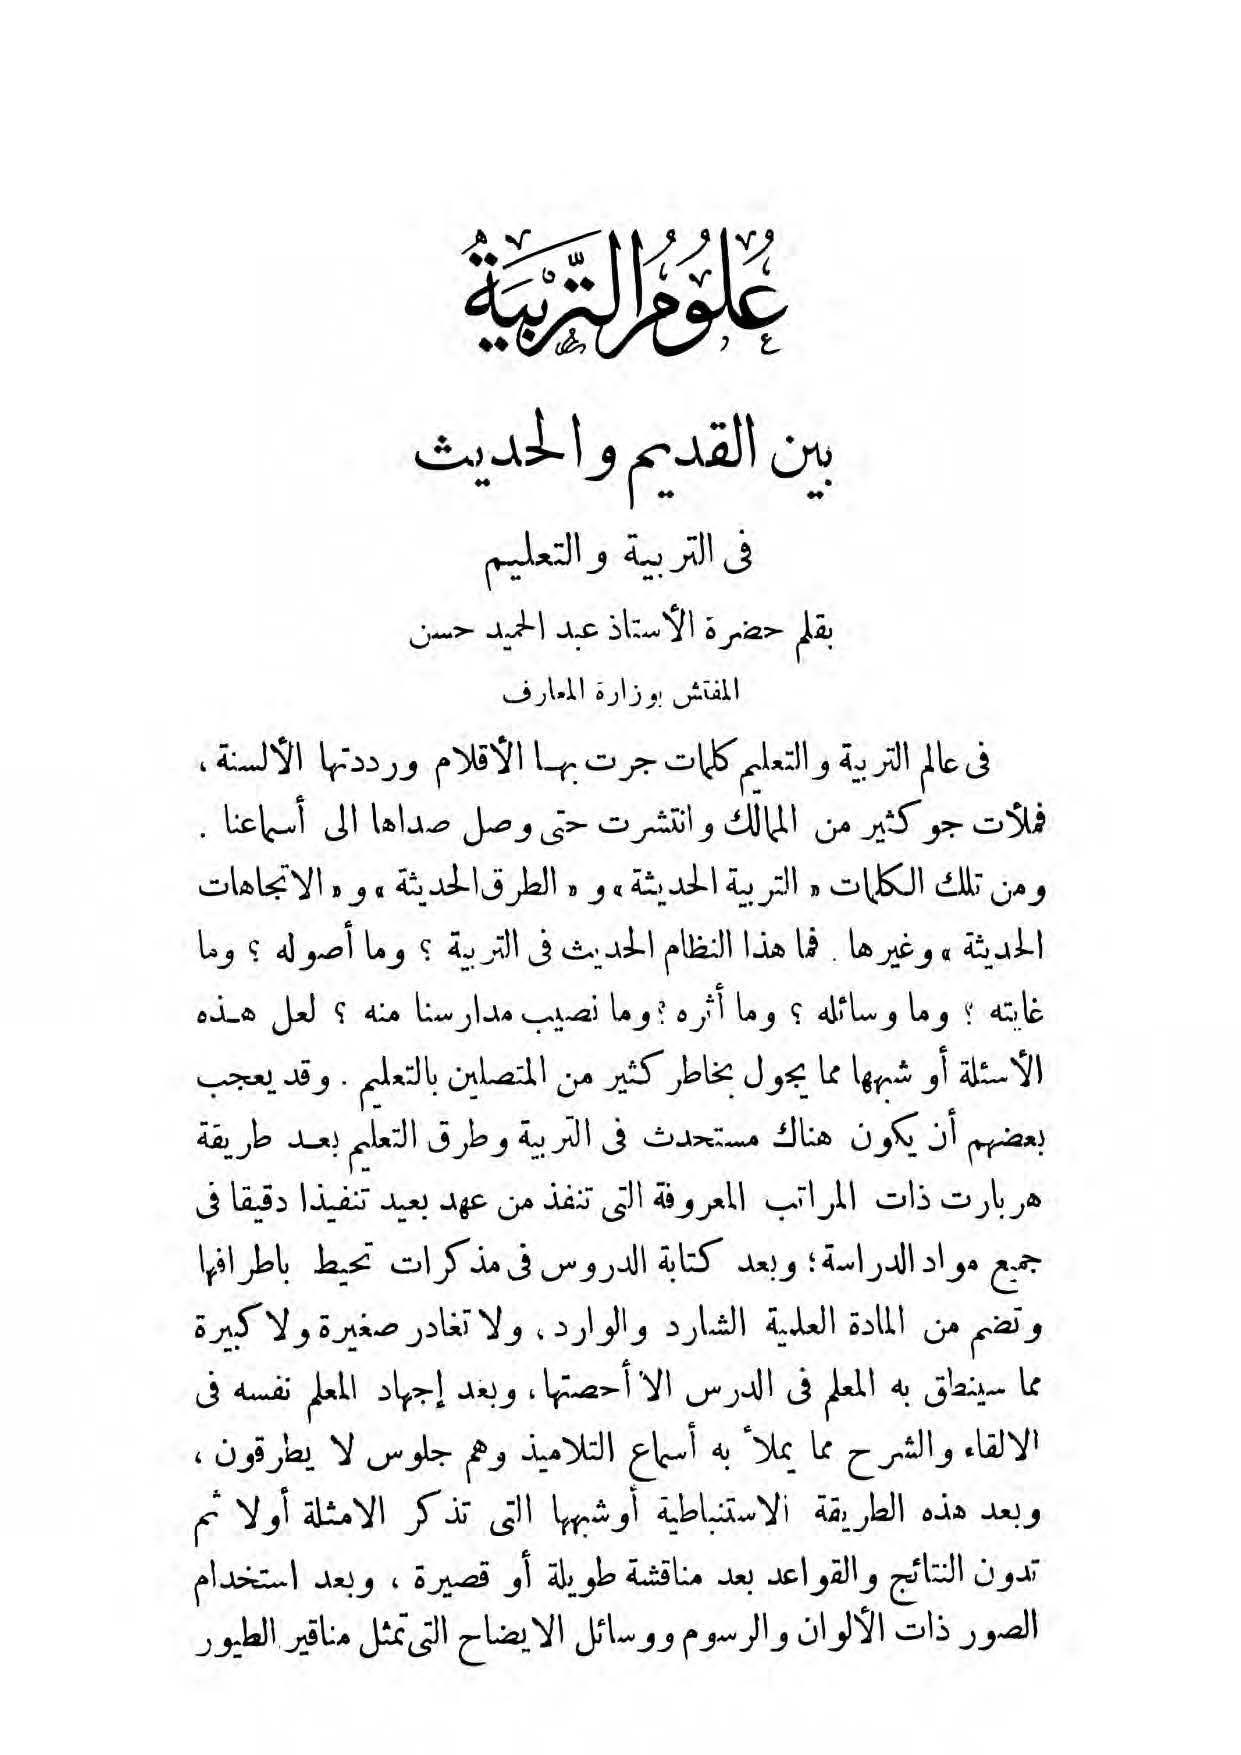 عُلُومُ التَّرْبِيَةِ
بين القديم والحديث
فى التربية والتعليم
بقلم حضرة الأستاذ عبد الحميد حسن
المفتش بوزارة المعارف
فى عالم التربية والتعليم كلمات جرت بها الأقلام ورددتها الألسنة ،
فملأت جو كثير من الممالك وانتشرت حتى وصل صداها الى أسماعنا .
ومن تلك الكلمات « التربية الحديثة » و « الطرق الحديثة » و « الاتجاهات
الحديثة » وغيرها . فما هذا النظام الحديث فى التربية ؟ وما أصوله ؟ وما
غايته ؟ وما وسائله ؟ وما أثره ؟ وما نصيب مدارسنا منه ؟ لعل هذه
الأسئلة أو شبهها مما يجول بخاطر كثير من المتصلين بالتعليم . وقد يعجب
بعضهم أن يكون هناك مستحدث فى التربية وطرق التعليم بعد طريقة
هربارت ذات المراتب المعروفة التى تنفذ من عهد بعيد تنفيذا دقيقا فى
جميع مواد الدراسة ؛ وبعد كتابة الدروس فى مذكرات تحيط باطرافها
وتضم من المادة العلمية الشارد والوارد ، ولا تغادر صغيرة ولا كبيرة
مما سينطق به المعلم فى الدرس الا أحصتها ، وبعد إجهاد المعلم نفسه فى
الالقاء والشرح مما يملأ به أسماع التلاميذ وهم جلوس لا يطرقون ،
وبعد هذه الطريقة الاستنباطية أو شبهها التى تذكر الامثلة أولا ثم
تدون النتائج والقواعد بعد مناقشة طويلة أو قصيرة ، وبعد استخدام
الصور ذات الألوان والرسوم ووسائل الايضاح التى تمثل مناقير الطيور